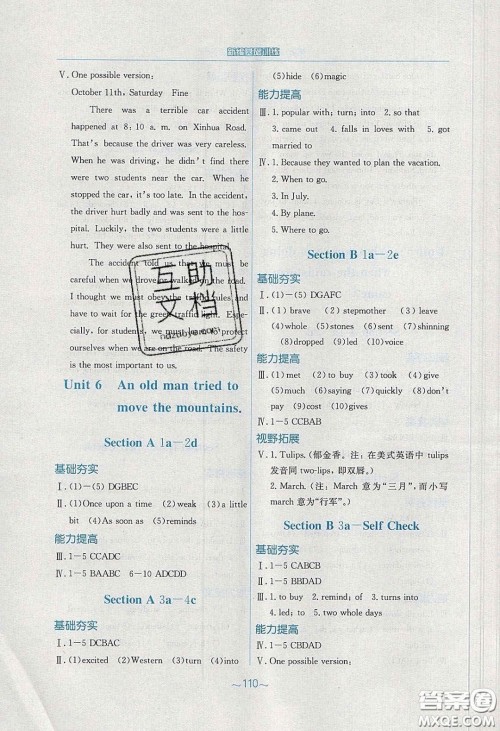 新编基础训练
Ⅴ. One possible version:
October 11th, Saturday Fine
There was a terrible car accident
happened at 8:10 a. m. on Xinhua Road.
That's because the driver was very careless.
When he was driving, he didn't see there
were two students near the car. When he
stopped the car, it's too late. In the accident,
the driver hurt badly and was sent to the hos-
pital. Luckily, the two students were a little
hurt. They were also sent to the hospital.
The accident told us that we must be
careful when we drove or walked on the road.
I thought we must obey the traffic rules and
have to wait for the green traffic light. Espe-
cially, for students, we must look around
when we are on the road. The safety
is the most important to us.
Unit 6 An old man tried to
move the mountains.
Section A 1a—2d
基础夯实
Ⅰ. (1)—(5) DGBEC
Ⅱ. (1)Once upon a time (2)weak (3)a little
bit (4)As soon as (5)reminds
能力提高
Ⅲ. 1—5 CCADC
Ⅳ. 1—5 BAABC 6—10 ADCDD
Section A 3a—4c
基础夯实
Ⅰ. 1—5 DCBAC
Ⅱ. (1)excited (2)Western (3)turn (4)into
(5)hide (6)magic
能力提高
Ⅲ. 1. popular with; turn; into 2. so that
3. came out 4. falls in loves with 5. got
married to
Ⅳ. 1. Because they wanted to plan the vacation.
2. When to go.
3. In July.
4. By plane.
5. Where to go.
Section B 1a—2e
基础夯实
Ⅰ. (1)—(5) DGAFC
Ⅱ. (1) brave (2) stepmother (3) leave
(4)wife (5)whole (6)moonlight (7)shinning
(8)dropped (9)led (10)voice
能力提高
Ⅲ. (1)met (2)to buy (3)invited (4)give
(5)much (6)saying (7)quickly (8)don't
(9)pay (10)gives
Ⅳ. 1—5 CCBAB
视野拓展
Ⅴ. 1. Tulips. (郁金香。注：在美式英语中 tulips
发音同 two-lips，即双唇。)
2. March. (注：March 意为“三月”，而小写
march 意为“行军”。)
Section B 3a—Self Check
基础夯实
Ⅰ. 1—5 CABCB
Ⅱ. 1—5 BBDAD
Ⅲ. 1. to buy 2. remind; of 3. turns into
4. led; to 5. two whole days
能力提高
Ⅳ. 1—5 CBDAD
Ⅴ. One possible version:
互助
文档
～110～
答案圈
MXQE.COM